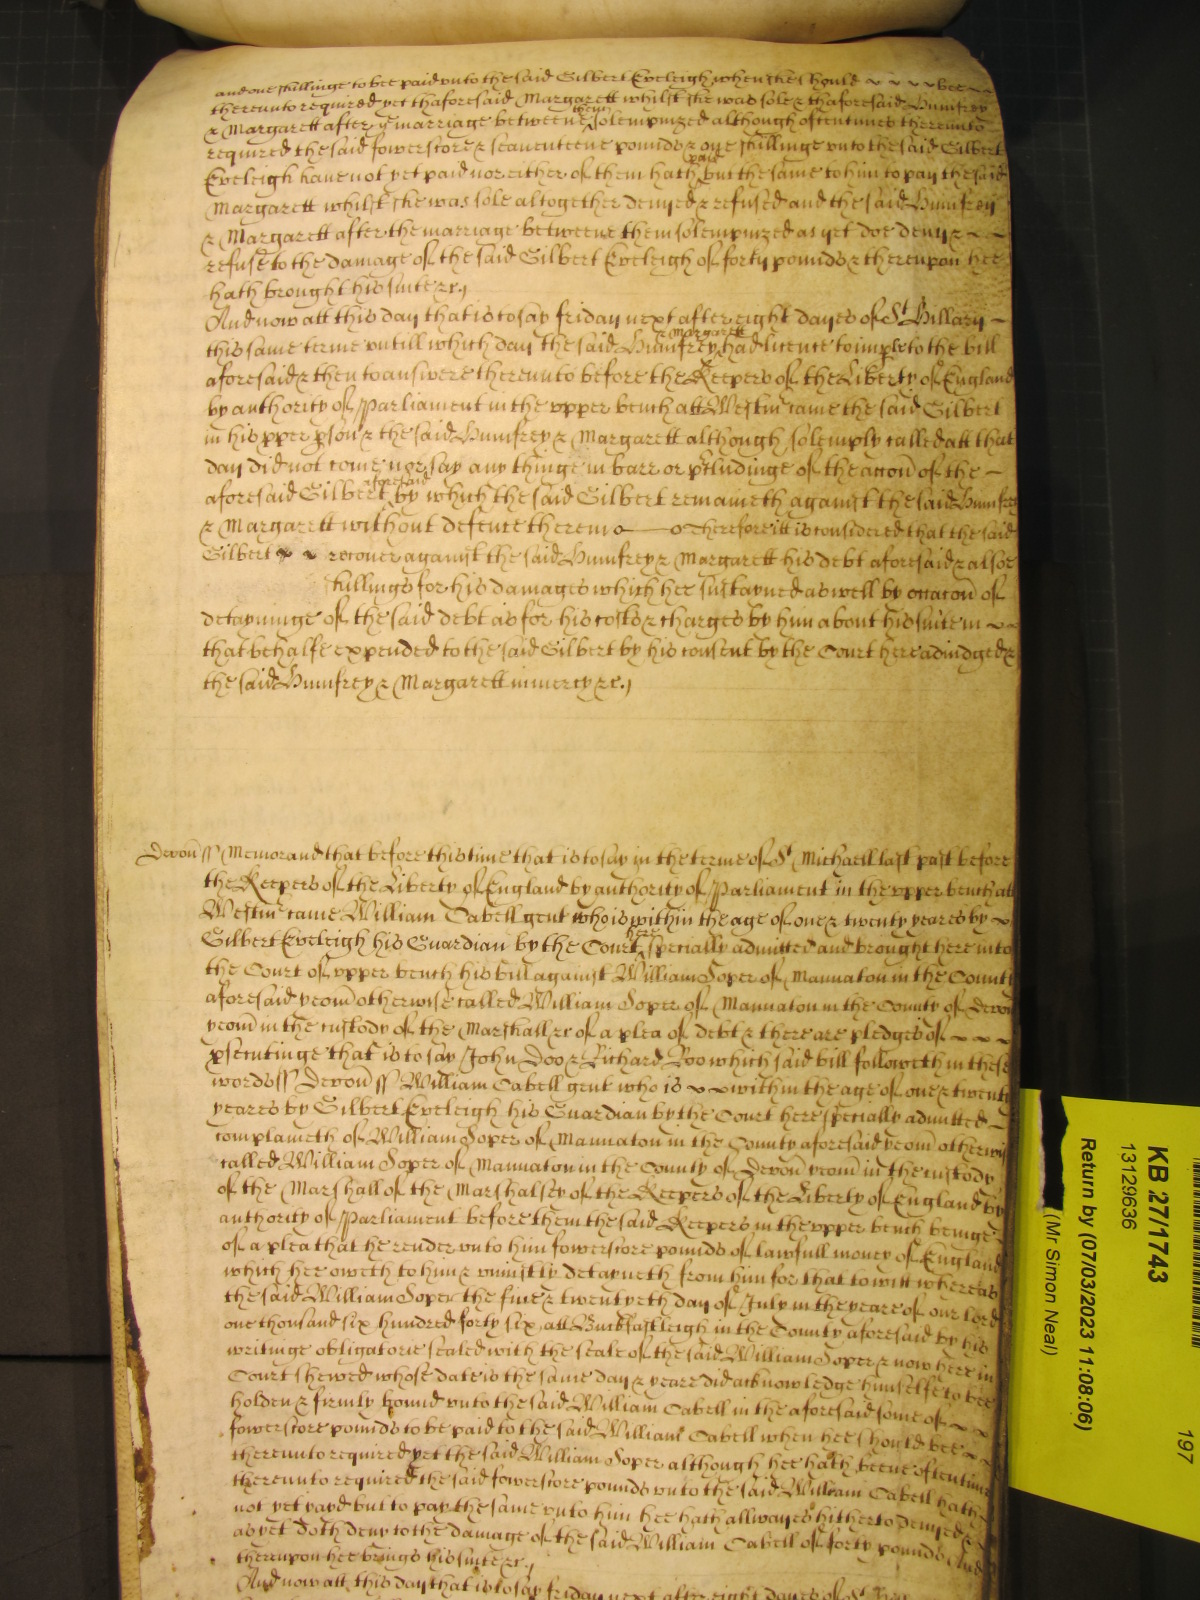 and one shillinge to bee paid unto the said Gilbert Eveleigh when she should bee
thereunto required yet thaforesaid Margarett whilst she was sole & thaforesaid Humfrey
& Margarett after ye marriage betweene them solempnized although oftentimes thereunto
required the said fowerscore & seaventeene pounds & one shillinge unto the said Gilbert
Eveleigh have not yet paid nor either of them hath paid but the same to him to pay the said
Margarett whilst she was sole altogether denyed & refused and the said Humfrey
& Margarett after the marriage betweene them solempnized as yet doe deny &
refuse to the damage of the said Gilbert Eveleigh of forty pounds & thereupon hee
hath brought his suite &c.
And now att this day that is to say friday next after eight dayes of St Hillary
this same terme untill which day the said Humfrey & Margarett had licence to imple to the bill
aforesaid & then to answere thereunto before the Keepers of the Liberty of England
by authority of Parliament in the upper bench att Westm came the said Gilbert
in his pper pson & the said Humfrey & Margarett although solemply called att that
day did not come nor say any thinge in barr or pcludinge of the accon of the
aforesaid Gilbert aforesaid by which the said Gilbert remaineth against the said Humfrey
& Margarett without defence therein Therefore itt is considered that the said
Gilbert recover against the said Humfrey & Margarett his debt aforesaid & alsoe
shillings for his damages which hee sustayned as well by occacon of
detayninge of the said debt as for his costs & charges by him about his suite in
that behalfe expended to the said Gilbert by his consent by the Court here adiudged &
the said Humfrey & Margarett in mercy &c.
Devon ss Memorand that before this time that is to say in the terme of St Michaell last past before
the Keepers of the Liberty of England by authority of Parliament in the upper bench att
Westm came William Cabell gent who is within the age of one & twenty yeares by
Gilbert Eveleigh his Guardian by the Court here specially admitted and brought here into
the Court of upper bench his bill against William Soper of Mannaton in the County
aforesaid yeom otherwise called William Soper of Mannaton in the County of Devon
yeom in the custody of the Marshall &c of a plea of debt & there are pledges of
psecutinge that is to say John Doo & Richard Roo which said bill followeth in these
words ss Devon ss William Cabell gent who is within the age of one & twenty
yeares by Gilbert Eveleigh his Guardian by the Court here specially admitted
complaineth of William Soper of Mannaton in the County aforesaid yeom otherwise
called William Soper of Mannaton in the County of Devon yeom in the custody
of the Marshall of the Marshalsey of the Keepers of the Liberty of England by
authority of Parliament before them the said Keepers in the upper bench beinge
of a plea that he render unto him fowerscore pounds of lawfull money of England
which hee oweth to him & uniustly detayneth from him for that to witt whereas
the said William Soper the five & twentyeth day of July in the yeare of our lord
one thousand six hundred forty six att Buckfastleigh in the County aforesaid by his
writinge obligatorie sealed with the seale of the said William Soper & now here in
Court shewed whose date is the same day & yeare did acknowledge himselfe to bee
holden & firmly bound unto the said William Cabell in the aforesaid some of
fowerscore pounds to be paid to the said William Cabell when hee should bee
thereunto required yet the said William Soper although hee hath beene oftentimes
thereunto required the said fowerscore pounds unto the said William Cabell hath
not yet payd but to pay the same unto him hee hath allwayes hitherto denyed &
as yet doth deny to the damage of the said William Cabell of forty pounds And
thereupon hee brings his suite &c.
And now att this day that is to say friday next after eight dayes of St
KB 27/1743
13129636
Return by (07/03/2023 11:08:06)
(Mr Simon Neal)
197